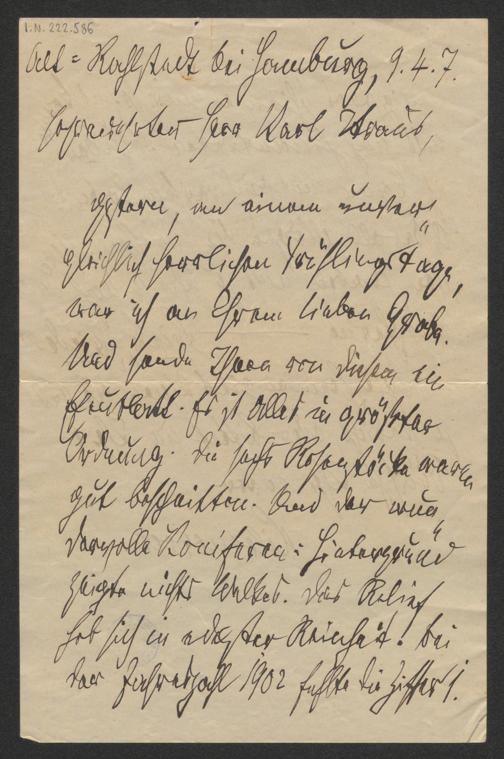 I.N. 222.586
Alt=Rahlstedt bei Hamburg, 9.4.7.
Sehrverehrter Herr Karl Kraus,
gestern, an einem unver=
gleichlich herrlichen Frühlingstage,
war ich an Ihrem lieben Grabe.
Und sende Ihnen von diesem ein
Epheublatt. Es ist Alles in größter
Ordnung. Die sechs Rosenstöcke waren
gut beschnitten. Und der wun=
dervolle Koniferen=Hintergrund
zeigte nichts Welkes. Das Relief
hob sich in edelster Reinheit. Bei
der Jahreszahl 1902 fehlte die Ziffer 1.